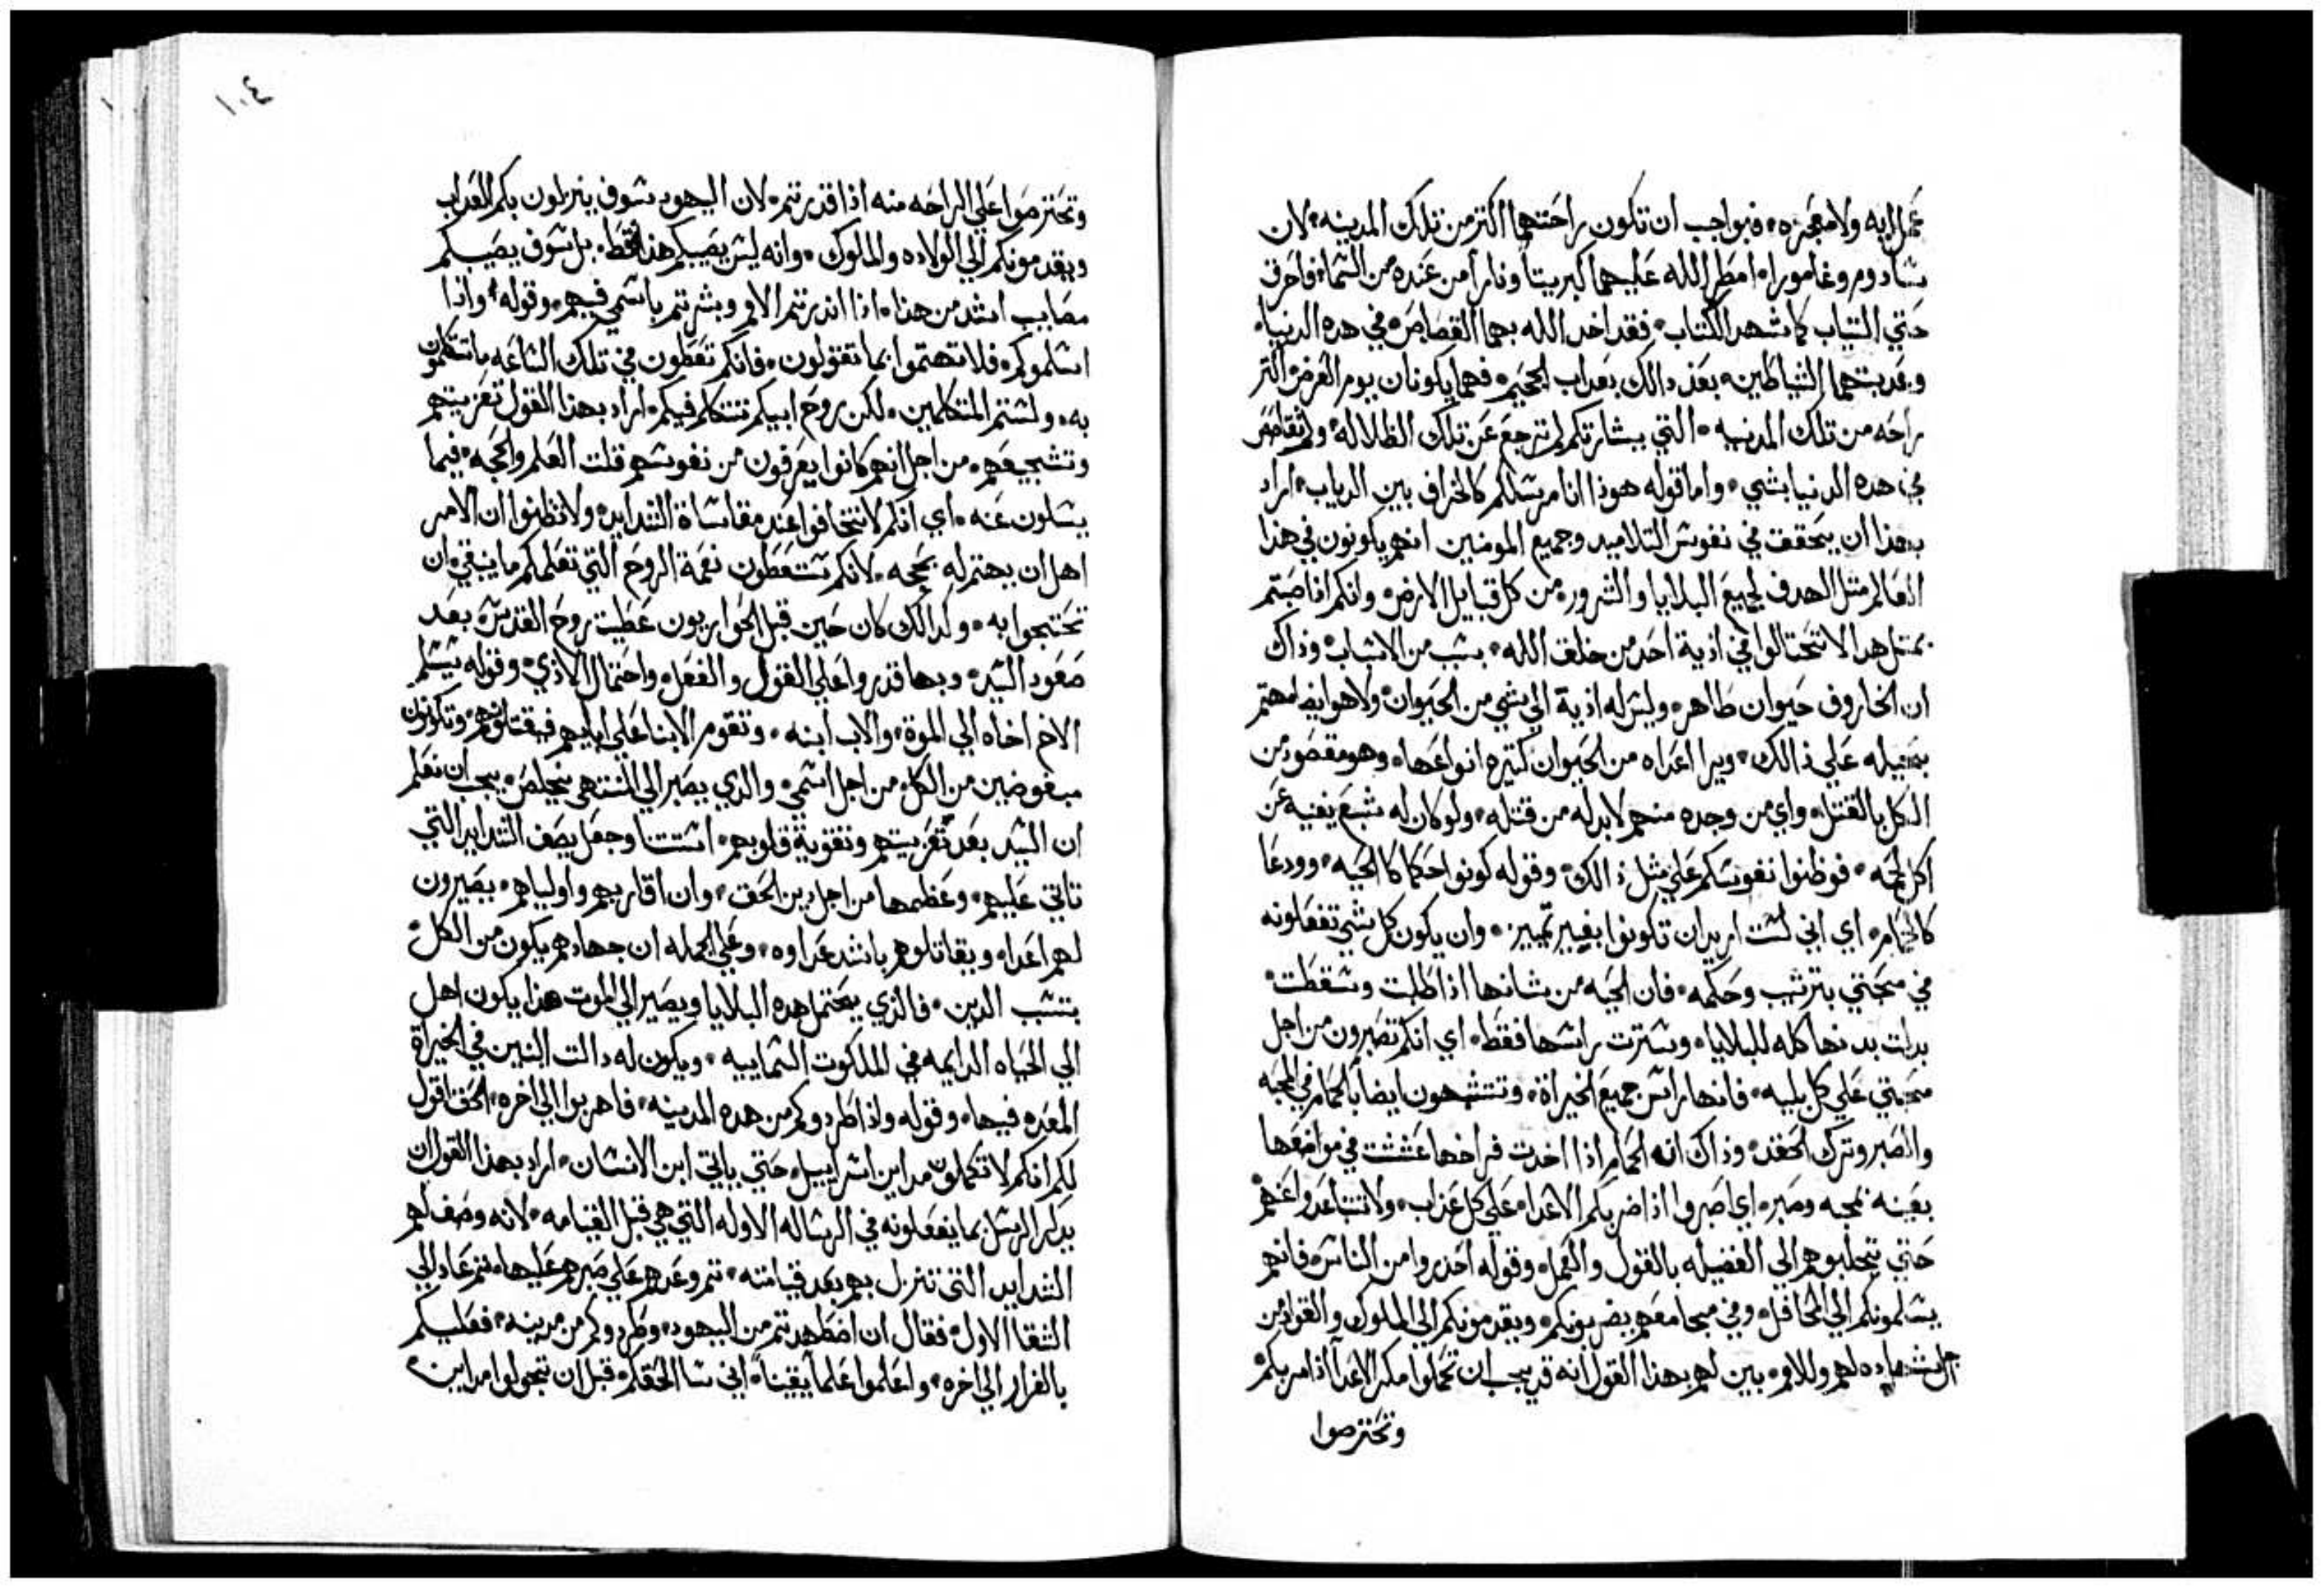 عمل ايه ولا معجزه، فبواجب ان تكون راحتهما اكتر من تلك المدينه، لان
سادوم وغامورا، امطر الله عليهما كبريتاً وناراً من عنده من السما، فاحرق
حتي التياب كما شهد الكتاب، فقد اخد الله بهما القصاص، في هده الدنيا،
وعدبتهما الشياطين، بعد دالك بعداب الجحيم، فهما يكونان يوم العرض اكتر
راحه من تلك المدنيه، التي بشارتكم لم ترجع عن تلك الظلاله، ولم تقاصص
في هده الدنيا بشي، واما قوله هوذا انا مرسلكم كالخراف بين الدياب، اراد
بهذا ان يتحقق في نفوس التلاميد وجميع المومنين انهم يكونون في هذا
العالم مثل الهدف لجميع البلايا والشرور، من كل قبايل الارض، وانكم اذا صبتم
بمتل هدا لا تتحتالوا في اذية احد من خلق الله، بسبب من الاسباب، وذاك
ان الخاروف حيوان طاهر، وليس له اذية الي شي من الحيوان، ولا هو ايضا مهتم
بحيله علي ذالك، ويرا اعداه من الحيوان كتيره انواعها، وهو مقصود من
الكل بالقتل، واي من وجده منهم لابد له من قتله، ولو كان له شبع يغنيه عن
اكل لحمه، فوطنوا نفوسكم علي مثل ذالك، وقوله كونوا حكما كالحيه، وودعا
كالحمام، اي اني لست اريد ان تكونوا بغير تمييز، وان يكون كل شي تفعلونه
في محبتي بترتيب وحكمه، فان الحيه من شانها اذا طلبت وسقطت،
بدات بدنها كله للبلايا، وسترت راسها فقط، اي انكم تصبرون من اجل
محبتي علي كل بليه، فانها راس جميع الخيراة، وتتشبهون ايضاً بالحمام في المحبه
والصبر وترك الحقد، وذاك ان الحمام اذا اخدت فراخها عششت في مواضعها
بعينه بمحبه وصبر، اي اصبروا اذا ضربكم الاعداء علي كل عذاب، ولا تتباعدوا عنهم
حتي تجلبوهم الي الفضيله بالقول والعمل، وقوله احذروا من الناس، فانهم
يسلمونكم الي المحافل، وفي مجامعهم يضربونكم، ويقدمونكم الي الملوك والقواد من
اجل شهاده لهم وللامم، بين لهم بهذا القول انه قد يجب ان تحملوا مكر الاعدا اذا مر بكم
وتحترصوا
١٠٤
وتحترصوا علي الراحه منه اذا قدرتم، لان اليهود سوف ينزلون بكم العداب
ويقدمونكم الي الولاده والملوك، وانه ليس يصيبكم هذا فقط، بل سوف يصيبكم
مصايب اشد من هذا، اذا انذرتم الامم وبشرتم باسمي فيهم، وقوله، واذا
اسلموكم، فلا تهتموا بما تقولون، فانكم تعطون في تلك الساعه ما تتكلمون
به، ولستم المتكلمين، لكن روح ابيكم تتكلم فيكم، اراد بهذا القول تعزيتهم
وتشجيعهم، من اجل انهم كانوا يعرفون من نفوسهم قلت العلم والحجه، فيما
يسلون عنه، اي انكم لا تخافوا عند مقاساة الشدايد، ولا تظنوا ان الامر
اهل ان يهتم له بحجه، لانكم ستعطون نعمة الروح التي تعلمكم ما ينبغي ان
تحتجوا به، وكدالك كان حين قبل الحواريون عطيت روح القدس، بعد
صعود السيد، وبها قدروا علي القول والفعل، واحتمال الاذي، وقوله يسلم
الاخ اخاه الي الموة، والاب ابنه، وتقوم الابنا علي ابايهم فيقتلونهم، وتكونون
مبغوضين من الكل، من اجل اسمي، والدي يصبر الي المنتهي يخلص، يجب ان نعلم
ان السيد بعد تعزيتهم وتقوية قلوبهم، استتنا وجعل يصف الشدايد التي
تاتي عليهم، وعظمها من اجل دين الحق، وان اقاربهم واولياهم، يصيرون
لهم اعداء ويقاتلوهم باشد عداوه، وعلي الجمله ان جهادهم يكون من الكل،
بسبب الدين، فالذي يحتمل هده البلايا ويصير الي الموت هذا يكون اهل
الي الحياه الدايمه في الملكوت السماييه، ويكون له دالت البنين في الخيراة
المعده فيها، وقوله واذا طردوكم من هده المدينه، فاهربوا الي اخره، الحق اقول
لكم انكم لا تكملون مداين اسراييل، حتي ياتي ابن الانسان، اراد بهذا القول ان
يدكر الرسل بما يفعلونه في الرساله الاوله التي هي قبل القيامه، لانه وصف لهم
الشدايد التي تنزل بهم بعد قيامته، تم وعدهم علي صبرهم عليها، تم عاد الي
الشقا الاول، فقال ان اضطهدتم من اليهود، وطردوكم من مدينه، فعليكم
بالفرار الي اخره، واعلموا علماً يقيناً، اني سالحقكم، قبل ان تتجولوا مداين